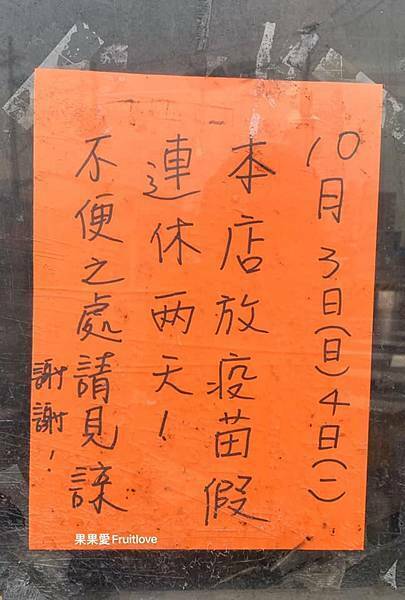 10月3日(日)4日(一)
本店放疫苗假
連休两天!
不便之處請見諒
謝謝!
果果愛Fruitlove